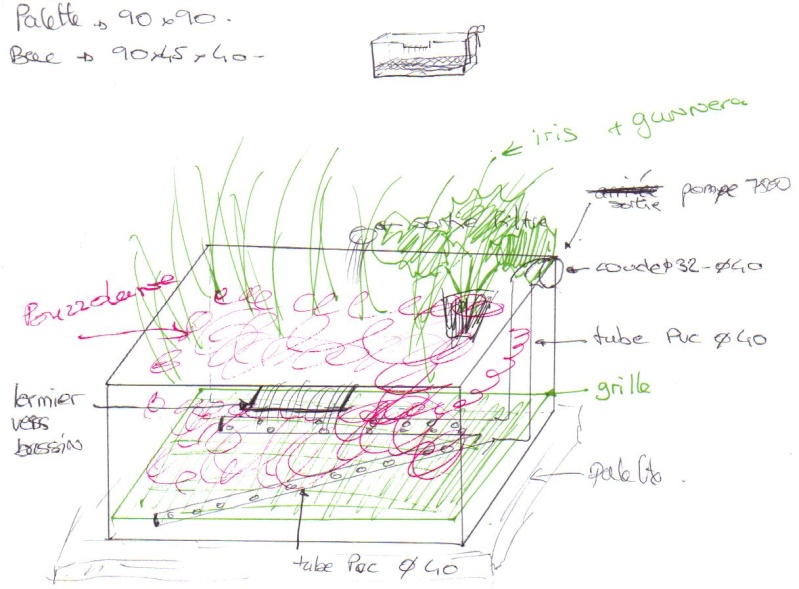 Palette → 90x90.
Bac → 90x45x40-
iris + gunnera
sortie pompe 7500
sortie filtre
coude ⌀32-⌀40
Pouzzolane
tube PVC ⌀40
grille
larmier
vers
bassin
palette
tube PVC ⌀40